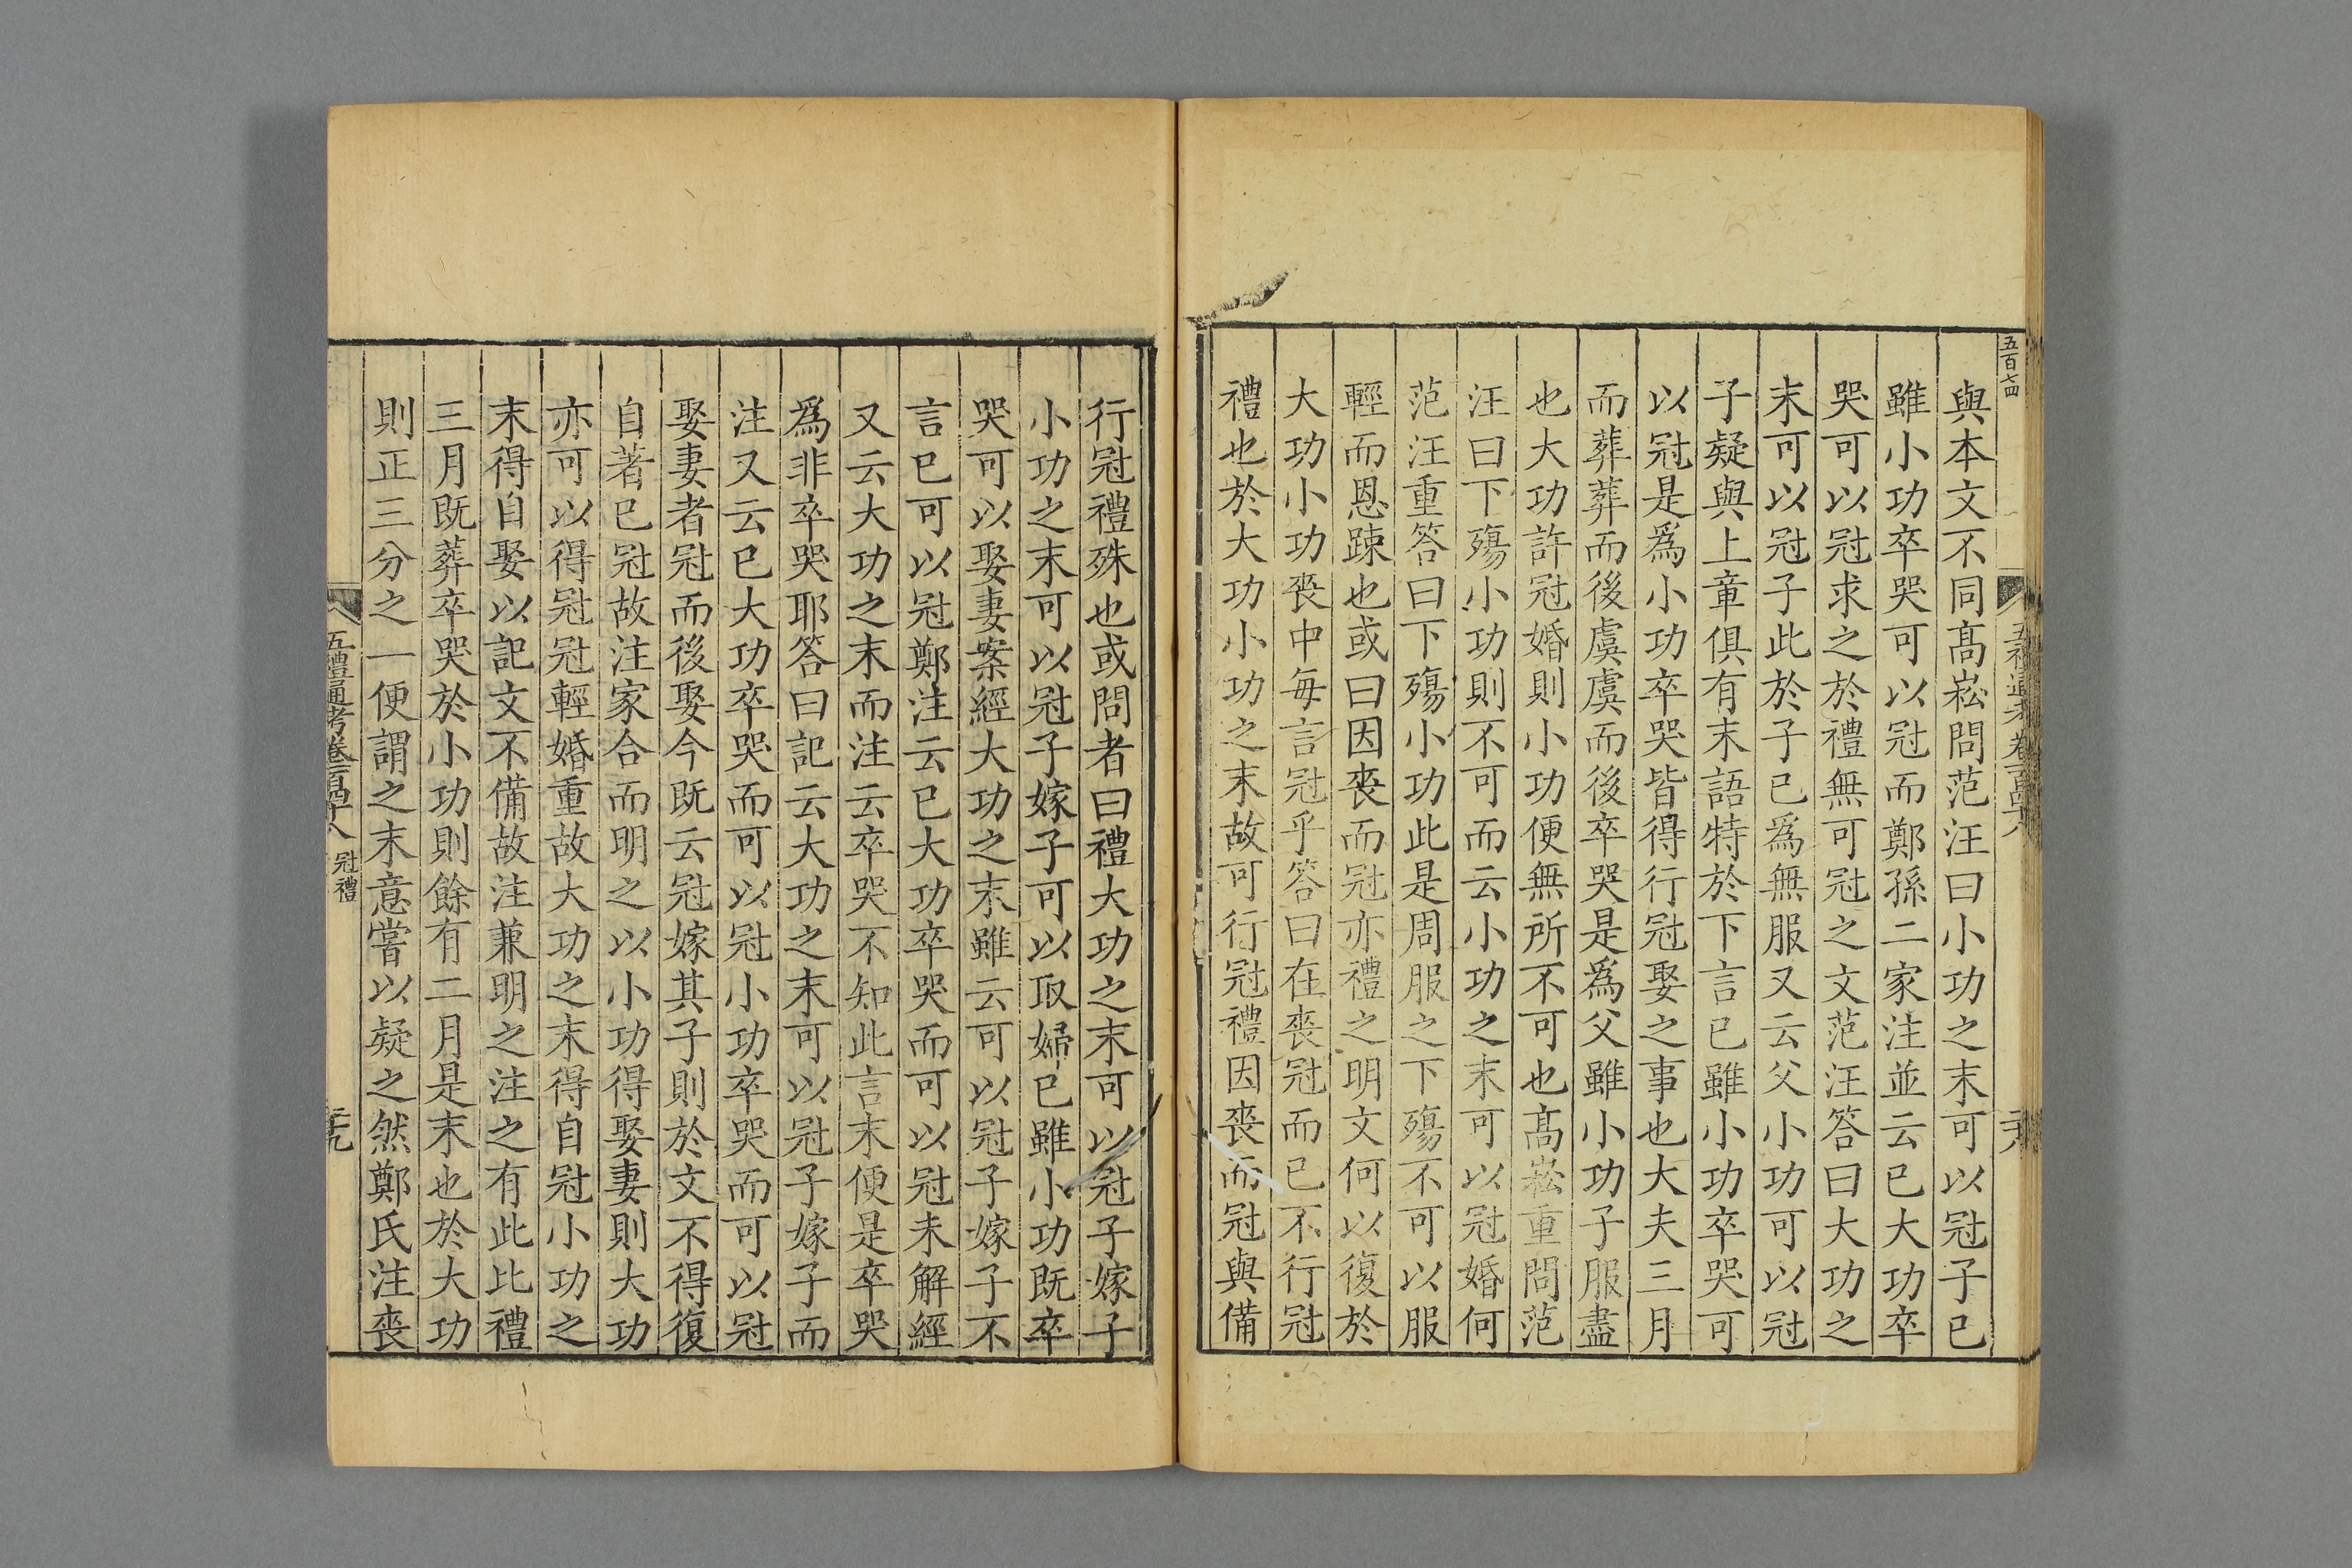 五百七四
與本文不同高崧問范汪曰小功之末可以冠子已
雖小功卒哭可以冠而鄭孫二家注並云已大功卒
哭可以冠求之於禮無可冠之文范汪答曰大功之
末可以冠子此於子已為無服又云父小功可以冠
子疑與上章俱有末語特於下言已雖小功卒哭可
以冠是爲小功卒哭皆得行冠娶之事也大夫三月
而葬葬而後虞虞而後卒哭是爲父雖小功子服盡
也大功許冠婚則小功便無所不可也高崧重問范
汪曰下殤小功則不可而云小功之末可以冠婚何
范汪重答曰下殤小功此是周服之下殤不可以服
輕而恩踈也或曰因喪而冠亦禮之明文何以復於
大功小功喪中每言冠乎答曰在喪冠而已不行冠
禮也於大功小功之末故可行冠禮因喪而冠與備
行冠禮殊也或問者曰禮大功之末可以冠子嫁子
小功之末可以冠子嫁子可以取婦已雖小功既卒
哭可以娶妻案經大功之末雖云可以冠子嫁子不
言已可以冠鄭注云已大功卒哭而可以冠未解經
又云大功之末而注云卒哭不知此言末便是卒哭
爲非卒哭耶答曰記云大功之末可以冠子嫁子而
注又云已大功卒哭而可以冠小功卒哭而可以冠
娶妻者冠而後娶今既云冠嫁其子則於文不得復
自著已冠故注家合而明之以小功得娶妻則大功
亦可以得冠冠輕婚重故大功之末得自冠小功之
末得自娶以記文不備故注兼明之注之有此比禮
三月既葬卒哭於小功則餘有二月是末也於大功
則正三分之一便謂之末意嘗以疑之然鄭氏注喪
五禮通考卷一百四十八 冠禮